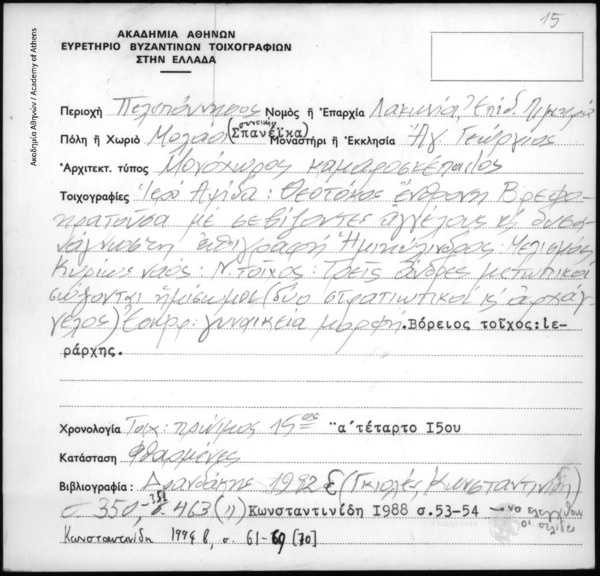 15
ΑΚΑΔΗΜΙΑ ΑΘΗΝΩΝ
ΕΥΡΕΤΗΡΙΟ ΒΥΖΑΝΤΙΝΩΝ ΤΟΙΧΟΓΡΑΦΙΩΝ
ΣΤΗΝ ΕΛΛΑΔΑ
Ακαδημία Αθηνών / Academy of Athens
Περιοχή Πελοπόννησος Νομός ἤ Ἐπαρχία Λακωνία, Ἐπίδ. Λιμηρά
Πόλη ἤ Χωριό Μολάοι (συνοικ. Σπανέϊκα) Μοναστήρι ἤ Ἐκκλησία Ἅγ. Γεώργιος
Ἀρχιτεκτ. τύπος Μονόχωρος καμαροσκέπαστος
Τοιχογραφίες Ἱερό Ἁψίδα: Θεοτόκος ἔνθρονη Βρεφο-
κρατοῦσα μέ σεβίζοντες ἀγγέλους κ δυσα-
νάγνωστη ἐπιγραφή Ἡμικύλινδρος: Μελισμός
Κυρίως ναός: Ν. τοῖχος: Τρεῖς ἄνδρες μετωπικοί
σώζονται ἡμίσωμοι (δύο στρατιωτικοί κ ἀρχάγ-
γελος) Ἐσωρρ: γυναικεία μορφή. Βόρειος τοῖχος: ἱε-
ράρχης.
Χρονολογία Τοιχ: πρώιμος 15ος "α΄τέταρτο Ι5ου
Κατάσταση Φθαρμένες
Βιβλιογραφία: Δρανδάκης 1982 ε (Γκιολές, Κωνσταντινίδη)
σ 350,-351 σ. 463 (,,) Κωνσταντινίδη Ι988 σ.53-54 → να ελεγχθούν οι σελίδες
Κωνσταντινίδη 1998 β, σ. 61-69 [70]